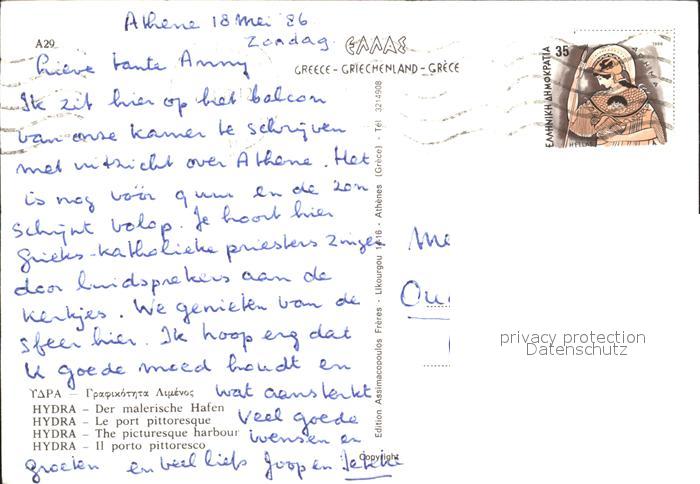 Athene 18 Mei 86
Zondag.
A29
ΕΛΛΑΣ
GREECE - GRIECHENLAND - GRÈCE
35
ΕΛΛΗΝΙΚΗ ΔΗΜΟΚΡΑΤΙΑ
HELLAS
ΑΘΗΝΑ
Lieve tante Anny
Ik zit hier op het balcon
van onze kamer te schrijven
met uitzicht over Athene. Het
is nog vóór 9 uur en de zon
schijnt volop. Je hoort hier
Grieks-katholieke priesters zingen
door luidsprekers aan de
kerkjes. We genieten van de
sfeer hier. Ik hoop erg dat
U goede moed houdt en
wat aansterkt
Veel goede
wensen en
groeten en veel liefs Joop en Jeteke
ΥΔΡΑ – Γραφικότητα Λιμένος
HYDRA – Der malerische Hafen
HYDRA – Le port pittoresque
HYDRA – The picturesque harbour
HYDRA – Il porto pittoresco
Edition Assimacopoulos Frères - Likourgou 14-16 - Athènes (Grèce) - Tél. 3214908
Copyright
Me
Ou
privacy protection
Datenschutz